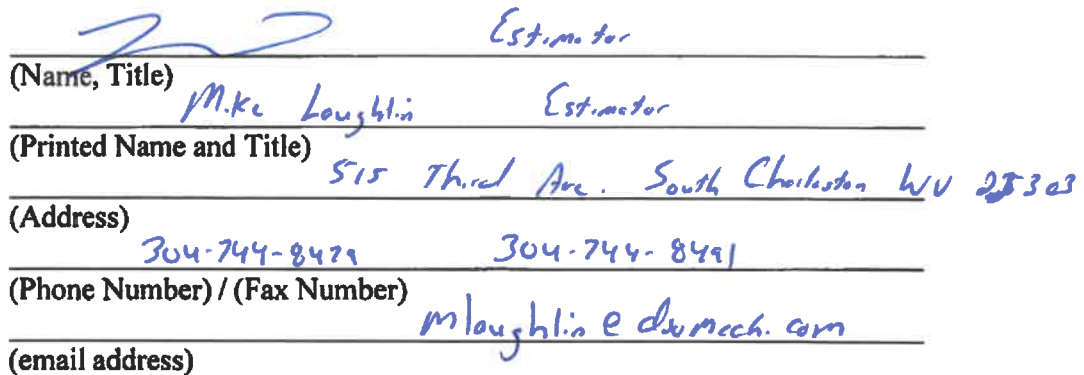 Estimator
(Name, Title)
Mike Loughlin Estimator
(Printed Name and Title)
515 Third Ave. South Charleston WV 25303
(Address)
304-744-8479 304-744-8491
(Phone Number) / (Fax Number)
mloughlin@dsumech.com
(email address)